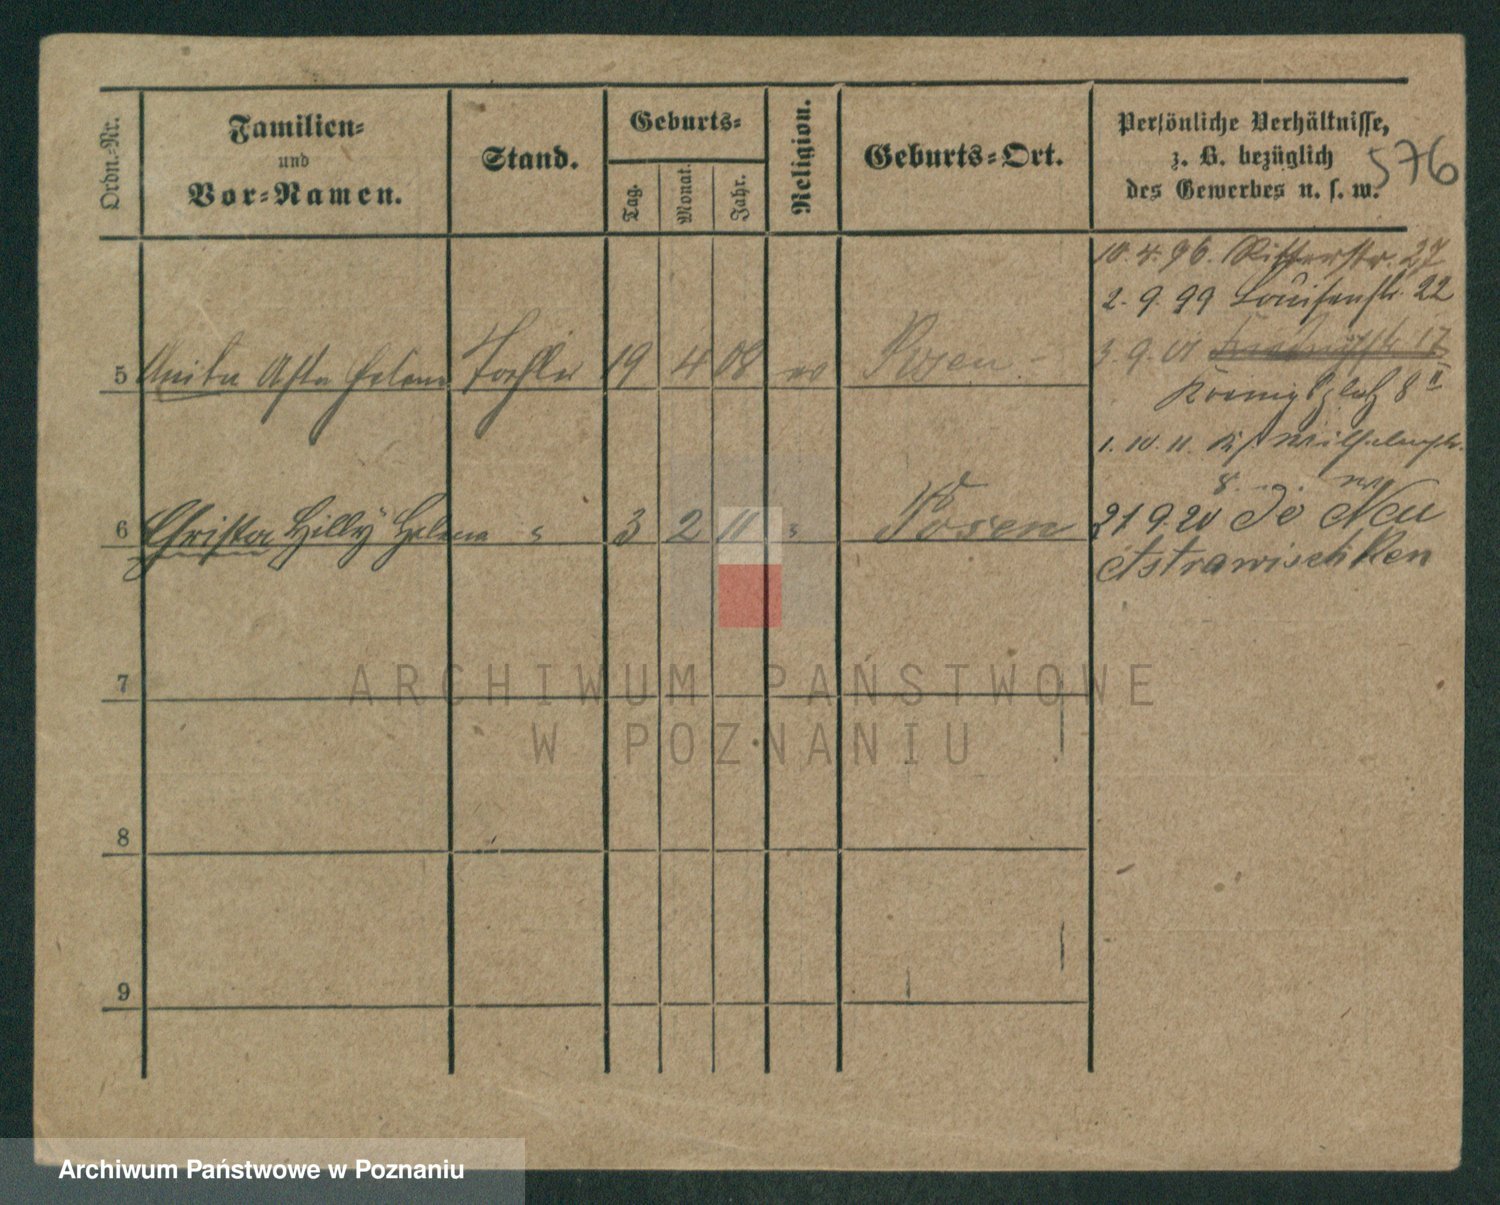 Ordn.-Nr.
Familien-
und
Vor-Namen.
Stand.
Geburts-
Tag.
Monat.
Jahr.
Religion.
Geburts-Ort.
Persönliche Verhältnisse,
z. B. bezüglich
des Gewerbes u. s. w.
576
10. 4. 96. Ritterstr. 27
2. 9. 99 Louisenstr. 22
3. 9. 01
Königsplatz 8 II
5 Anita Asta Helene Tochter 19 4 08 ev Posen
1. 10. 11.
8.
6 Christa Hilly Helene 3 2 11 Posen
21 9. 20 Neu
Astrawischken
7
8
9
ARCHIWUM PAŃSTWOWE
W POZNANIU
Archiwum Państwowe w Poznaniu